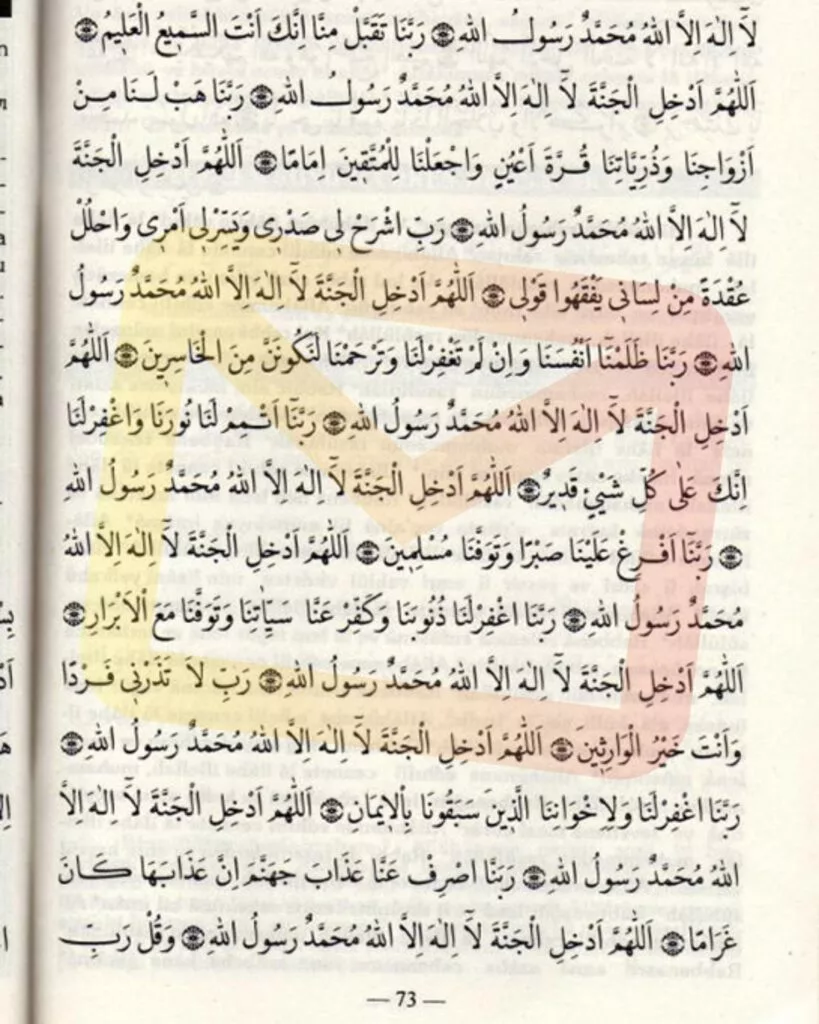 لَا اِلٰهَ اِلَّا اللهُ مُحَمَّدٌ رَسُولُ اللهِ ۞ رَبَّنَا تَقَبَّلْ مِنَّا اِنَّكَ اَنْتَ السَّمِيعُ الْعَلِيمُ ۞
اَللّٰهُمَّ اَدْخِلِ الْجَنَّةَ لَا اِلٰهَ اِلَّا اللهُ مُحَمَّدٌ رَسُولُ اللهِ ۞ رَبَّنَا هَبْ لَنَا مِنْ
اَزْوَاجِنَا وَذُرِّيَّاتِنَا قُرَّةَ اَعْيُنٍ وَاجْعَلْنَا لِلْمُتَّقِينَ اِمَامًا ۞ اَللّٰهُمَّ اَدْخِلِ الْجَنَّةَ
لَا اِلٰهَ اِلَّا اللهُ مُحَمَّدٌ رَسُولُ اللهِ ۞ رَبِّ اشْرَحْ لِى صَدْرِى وَيَسِّرْلِى اَمْرِى وَاحْلُلْ
عُقْدَةً مِنْ لِسَانِى يَفْقَهُوا قَوْلِى ۞ اَللّٰهُمَّ اَدْخِلِ الْجَنَّةَ لَا اِلٰهَ اِلَّا اللهُ مُحَمَّدٌ رَسُولُ
اللهِ ۞ رَبَّنَا ظَلَمْنَا اَنْفُسَنَا وَاِنْ لَمْ تَغْفِرْلَنَا وَتَرْحَمْنَا لَنَكُونَنَّ مِنَ الْخَاسِرِينَ ۞ اَللّٰهُمَّ
اَدْخِلِ الْجَنَّةَ لَا اِلٰهَ اِلَّا اللهُ مُحَمَّدٌ رَسُولُ اللهِ ۞ رَبَّنَا اَتْمِمْ لَنَا نُورَنَا وَاغْفِرْلَنَا
اِنَّكَ عَلٰى كُلِّ شَيْئٍ قَدِيرٌ ۞ اَللّٰهُمَّ اَدْخِلِ الْجَنَّةَ لَا اِلٰهَ اِلَّا اللهُ مُحَمَّدٌ رَسُولُ اللهِ
۞ رَبَّنَا اَفْرِغْ عَلَيْنَا صَبْرًا وَتَوَفَّنَا مُسْلِمِينَ ۞ اَللّٰهُمَّ اَدْخِلِ الْجَنَّةَ لَا اِلٰهَ اِلَّا اللهُ
مُحَمَّدٌ رَسُولُ اللهِ ۞ رَبَّنَا اغْفِرْلَنَا ذُنُوبَنَا وَكَفِّرْ عَنَّا سَيِّاٰتِنَا وَتَوَفَّنَا مَعَ الْاَبْرَارِ ۞
اَللّٰهُمَّ اَدْخِلِ الْجَنَّةَ لَا اِلٰهَ اِلَّا اللهُ مُحَمَّدٌ رَسُولُ اللهِ ۞ رَبِّ لَا تَذَرْنِى فَرْدًا
وَاَنْتَ خَيْرُ الْوَارِثِينَ ۞ اَللّٰهُمَّ اَدْخِلِ الْجَنَّةَ لَا اِلٰهَ اِلَّا اللهُ مُحَمَّدٌ رَسُولُ اللهِ ۞
رَبَّنَا اغْفِرْلَنَا وَلِاِخْوَانِنَا الَّذِينَ سَبَقُونَا بِالْاِيمَانِ ۞ اَللّٰهُمَّ اَدْخِلِ الْجَنَّةَ لَا اِلٰهَ اِلَّا
اللهُ مُحَمَّدٌ رَسُولُ اللهِ ۞ رَبَّنَا اصْرِفْ عَنَّا عَذَابَ جَهَنَّمَ اِنَّ عَذَابَهَا كَانَ
غَرَامًا ۞ اَللّٰهُمَّ اَدْخِلِ الْجَنَّةَ لَا اِلٰهَ اِلَّا اللهُ مُحَمَّدٌ رَسُولُ اللهِ ۞ وَقُلْ رَبِّ
— 73 —